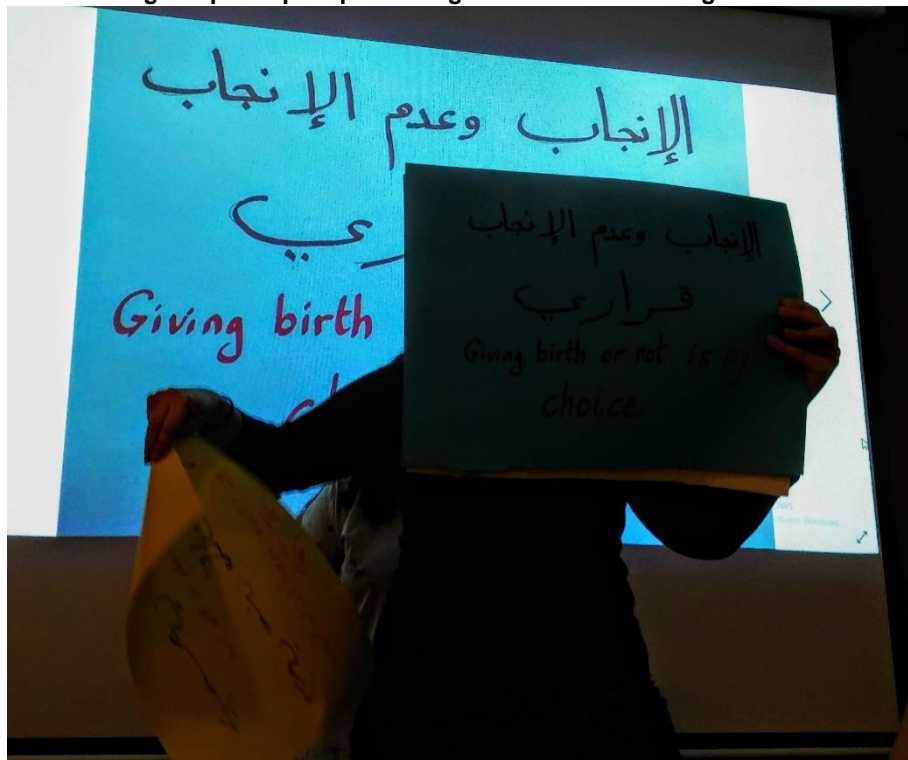 الإنجاب وعدم الإنجاب
ري
Giving birth
الإنجاب وعدم الإنجاب
قراري
Giving birth or not is my
choice
Windows